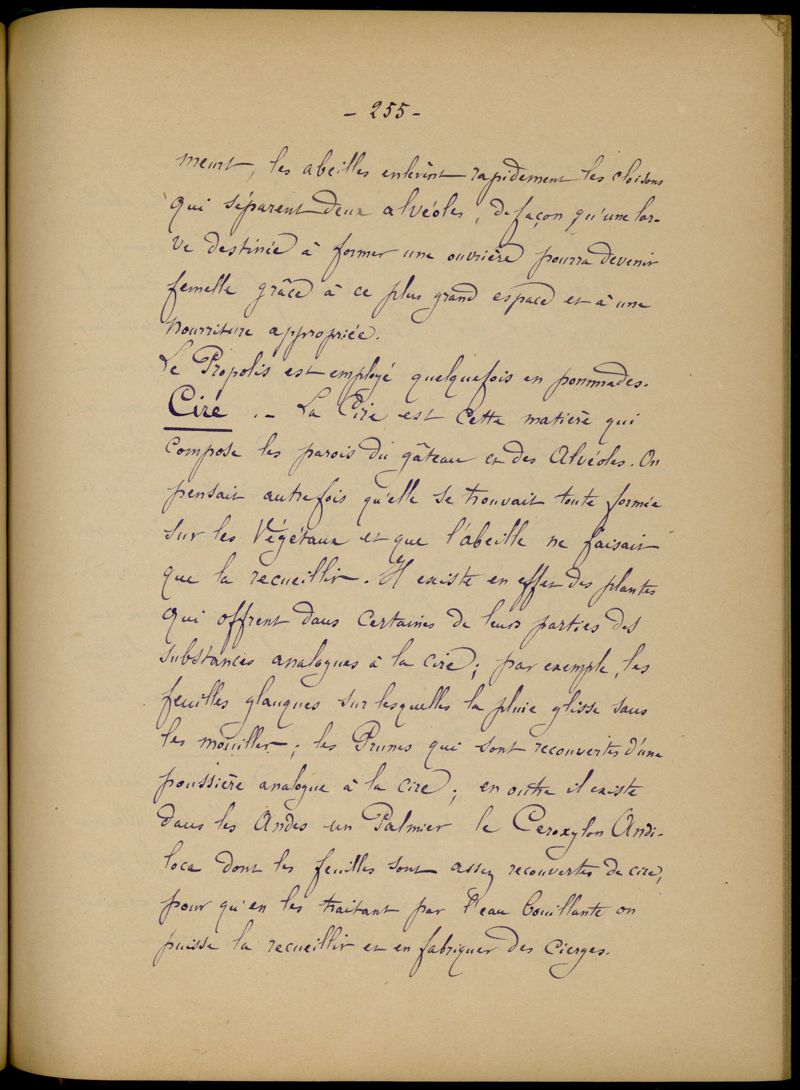 - 255 -
meurt, les abeilles enlèvent rapidement les cloisons
qui séparent deux alvéoles, de façon qu'une lar-
ve destinée à former une ouvrière pourra devenir
femelle grâce à ce plus grand espace et à une
nourriture appropriée.
Le Propolis est employé quelquefois en pommades.
Cire . - La Cire est cette matière qui
compose les parois du gâteau et des Alvéoles. On
pensait autrefois qu'elle se trouvait toute formée
sur les Végétaux et que l'abeille ne faisait
que la recueillir. Il existe en effet des plantes
qui offrent dans certaines de leurs parties des
substances analogues à la cire; par exemple, les
feuilles glauques sur lesquelles la pluie glisse sans
les mouiller; les Prunes qui sont recouvertes d'une
poussière analogue à la cire; en outre il existe
dans les Andes un Palmier le Ceroxylon Andi-
loca dont les feuilles sont assez recouvertes de cire,
pour qu'en les traitant par l'eau bouillante on
puisse la recueillir et en fabriquer des Cierges.